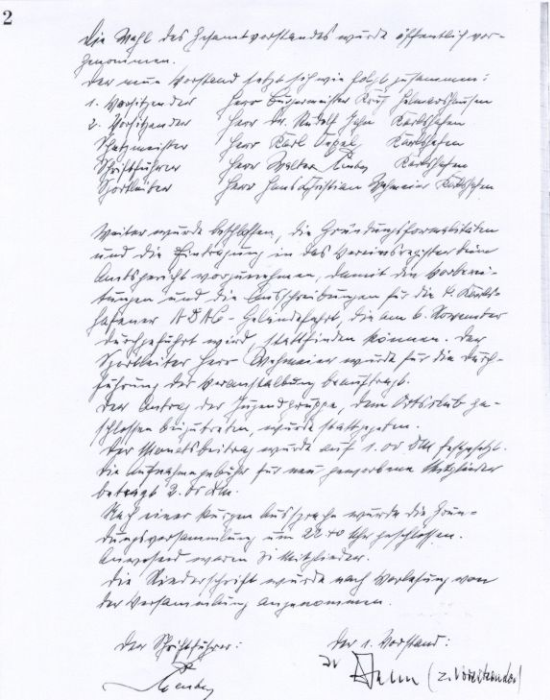 2
Die Wahl des Gesamtvorstandes wurde öffentlich vor-
genommen.
Der neue Vorstand setzt sich wie folgt zusammen:
1. Vorsitzender Herr Bürgermeister Helmarshausen
2. Vorsitzender Herr Dr. Rudolf Jahn Karlshafen
Schatzmeister Herr Karl Karlshafen
Schriftführer Herr Walter Karlshafen
Sportleiter Herr Hans Christian Wehmeier Karlshafen
Weiter wurde beschlossen, die Gründungsformalitäten
und die Eintragung in das Vereinsregister beim
Amtsgericht vorzunehmen, damit die Vorberei-
tungen und die Ausschreibungen für die 4. Karls-
hafener ADAC-Geländefahrt, die am 6. November
durchgeführt wird, stattfinden können. Der
Sportleiter Herr Wehmeier wurde für die Durch-
führung der Veranstaltung beauftragt.
Der Antrag der Jugendgruppe, dem Ortsclub ge-
schlossen beizutreten, wurde stattgegeben.
Der Monatsbeitrag wurde auf 1.00 DM festgesetzt.
Die Aufnahmegebühr für neu geworbene Mitglieder
beträgt 3.00 DM.
Nach einer kurzen Aussprache wurde die Grün-
dungsversammlung um 22.40 Uhr geschlossen.
Anwesend waren Mitglieder.
Die Niederschrift wurde nach Vorlesung von
der Versammlung angenommen.
Der Schriftführer: Der 1. Vorstand:
Dr Jahn (2. Vorsitzender)